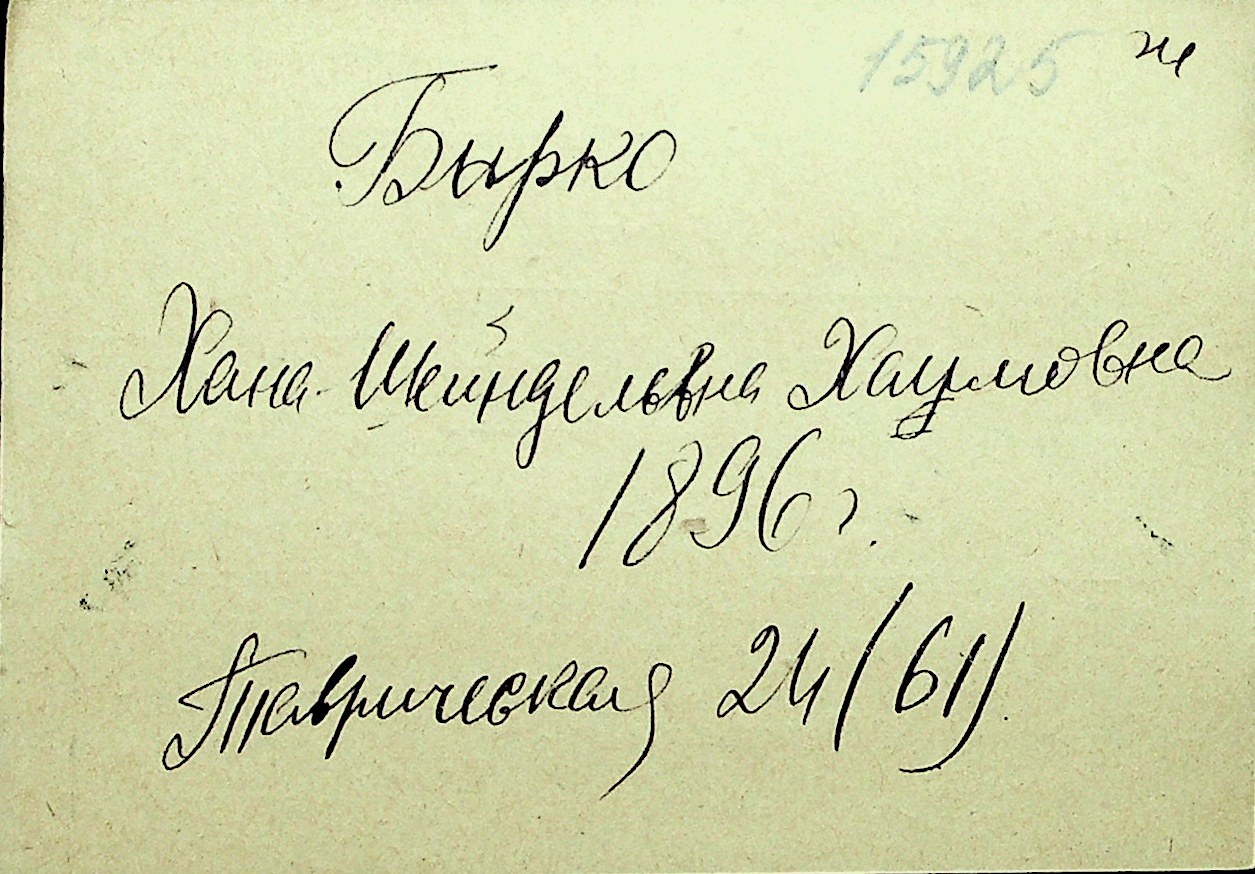 15925 ж
Бырко
Хана-Шейндельвна Хаумовна
1896 г.
Таврическая 24 (61)